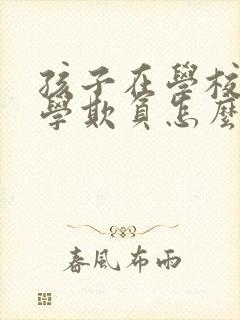 孩子在學校
學欺負怎麼
春風布雨